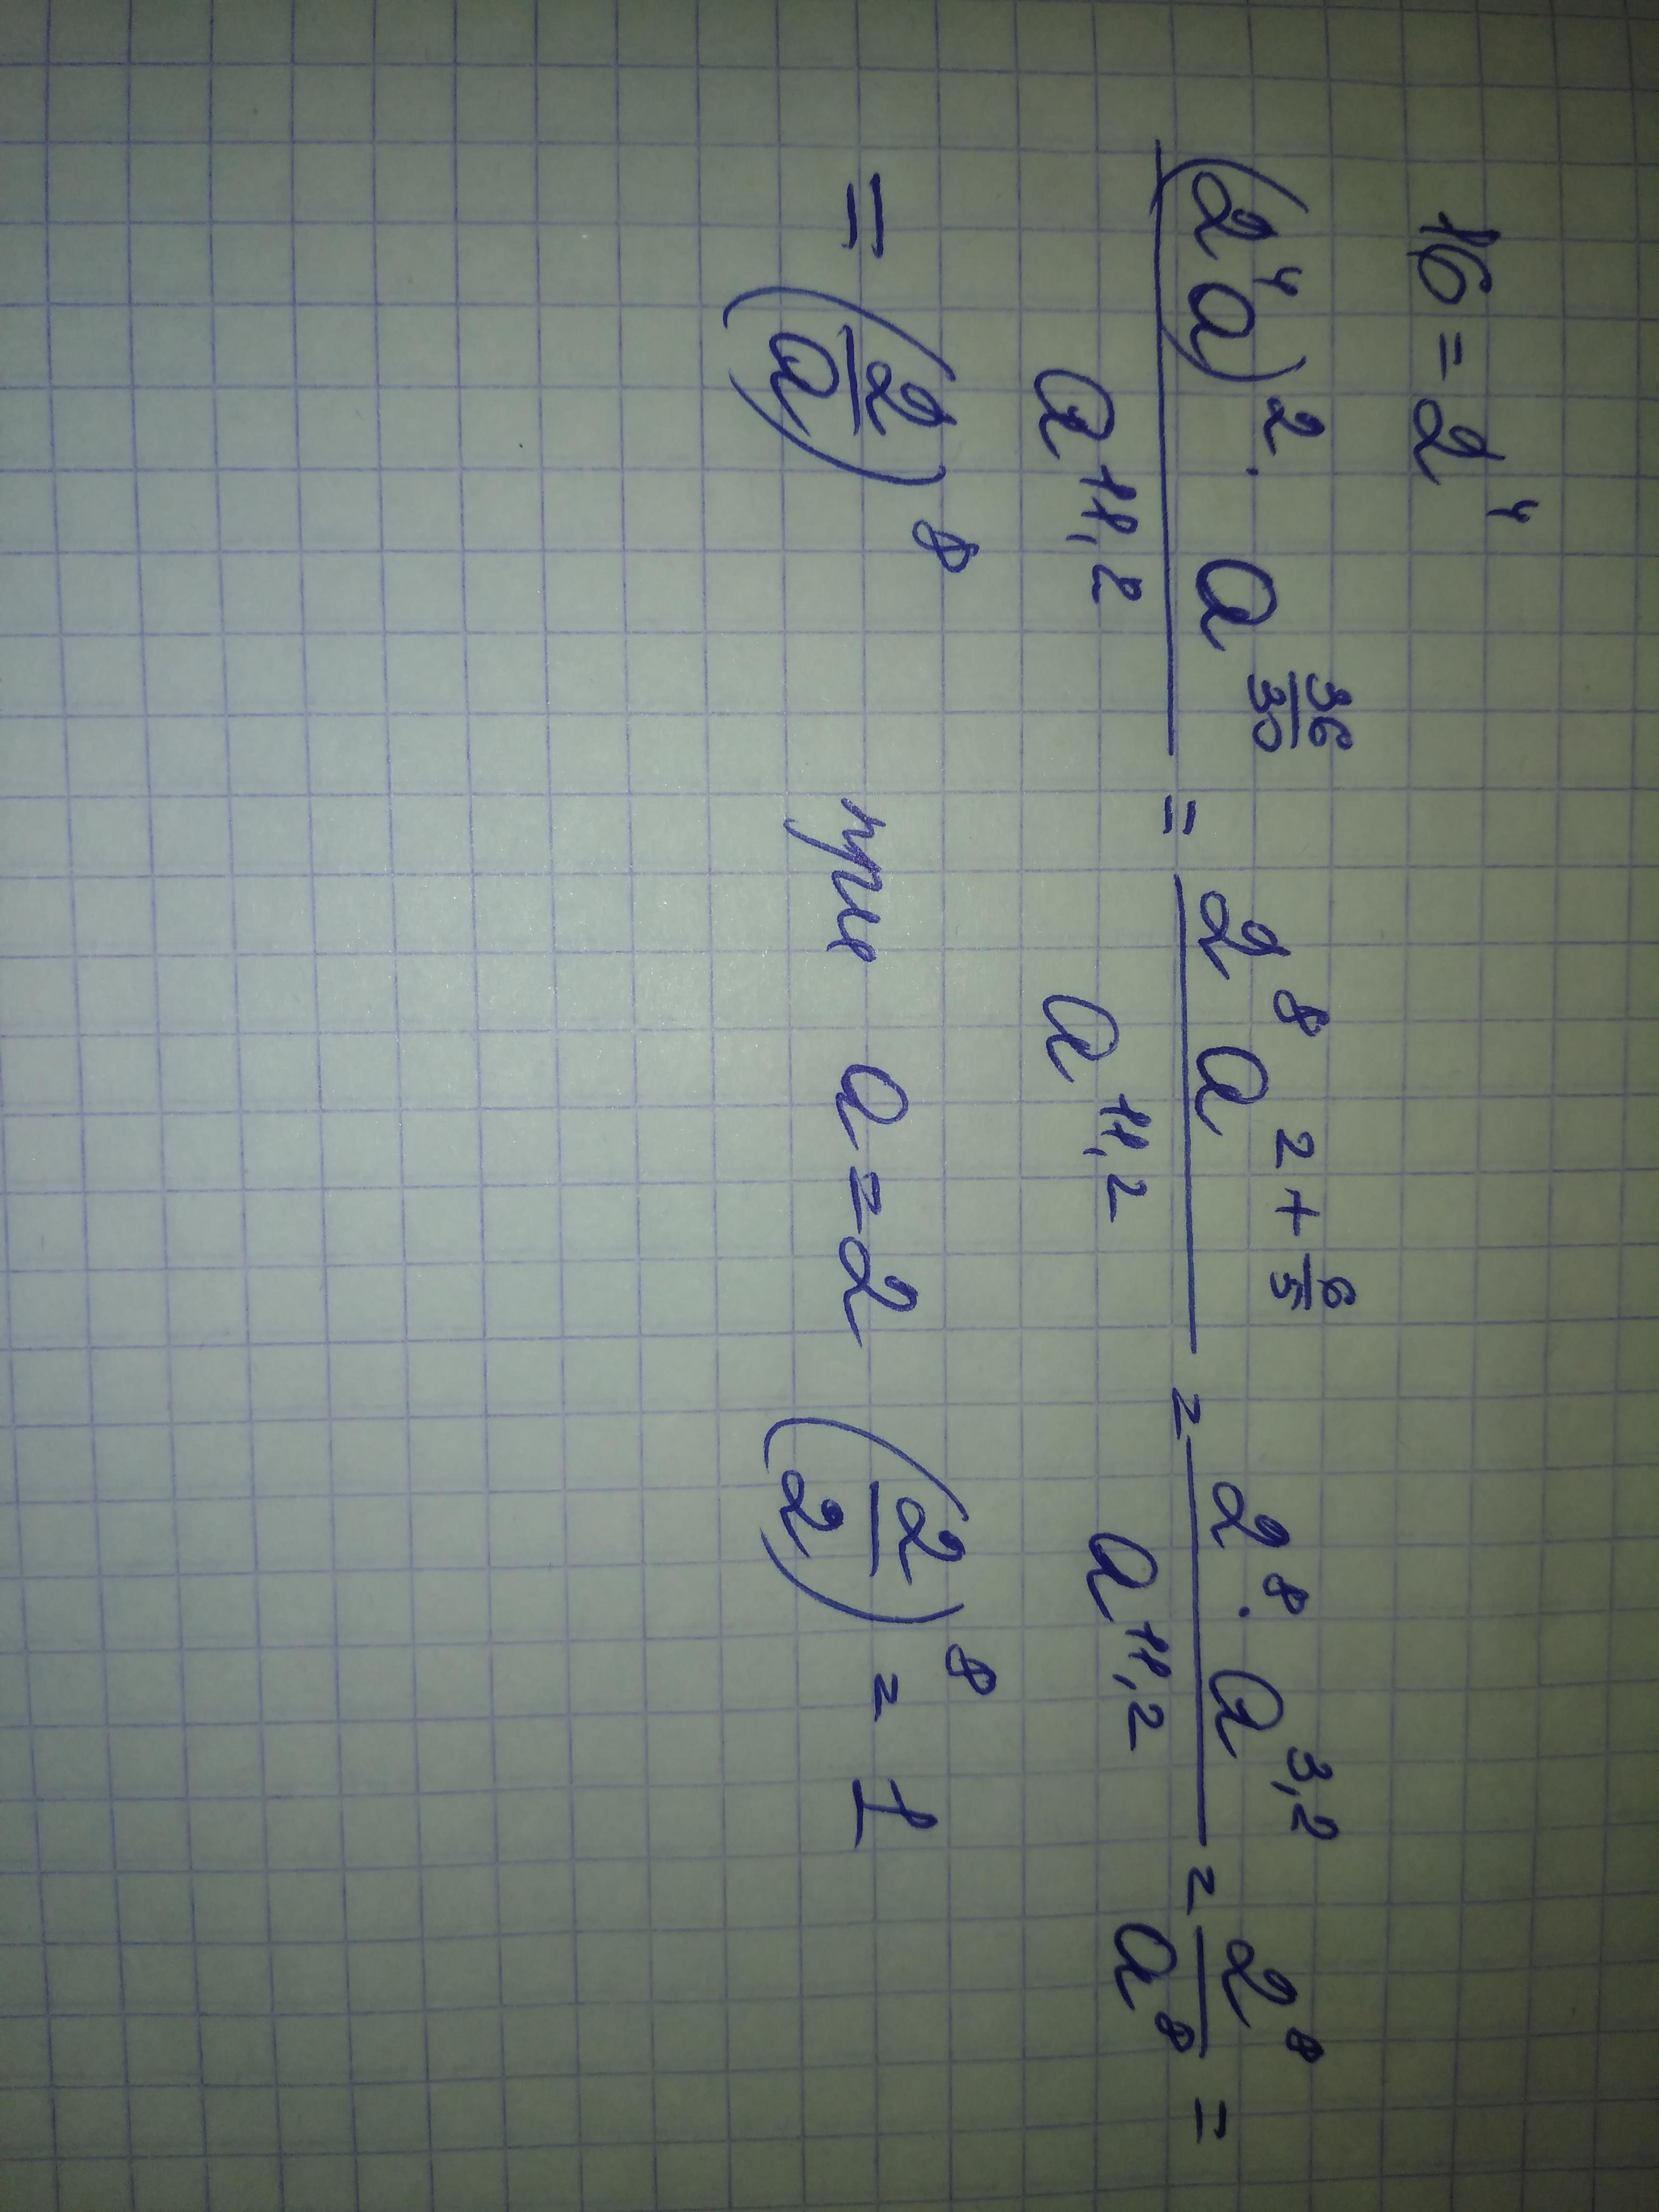 16 = 2⁴
(2⁴a)² · a^(36/30) / a^(11,2) = 2⁸a^(2+6/5) / a^(11,2) = 2⁸ · a^(3,2) / a^(11,2) = 2⁸ / a⁸ =
= (2/a)⁸ при a = 2 (2/2)⁸ = 1